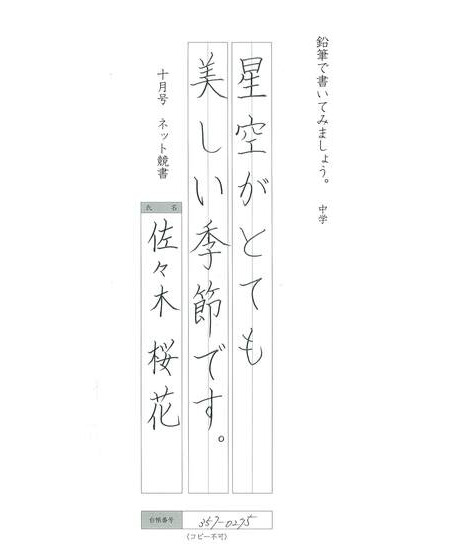 鉛筆で書いてみましょう。 中学
星空がとても
美しい季節です。
十月号 ネット競書
氏名
佐々木 桜花
台帳番号 357-0275
(コピー不可)